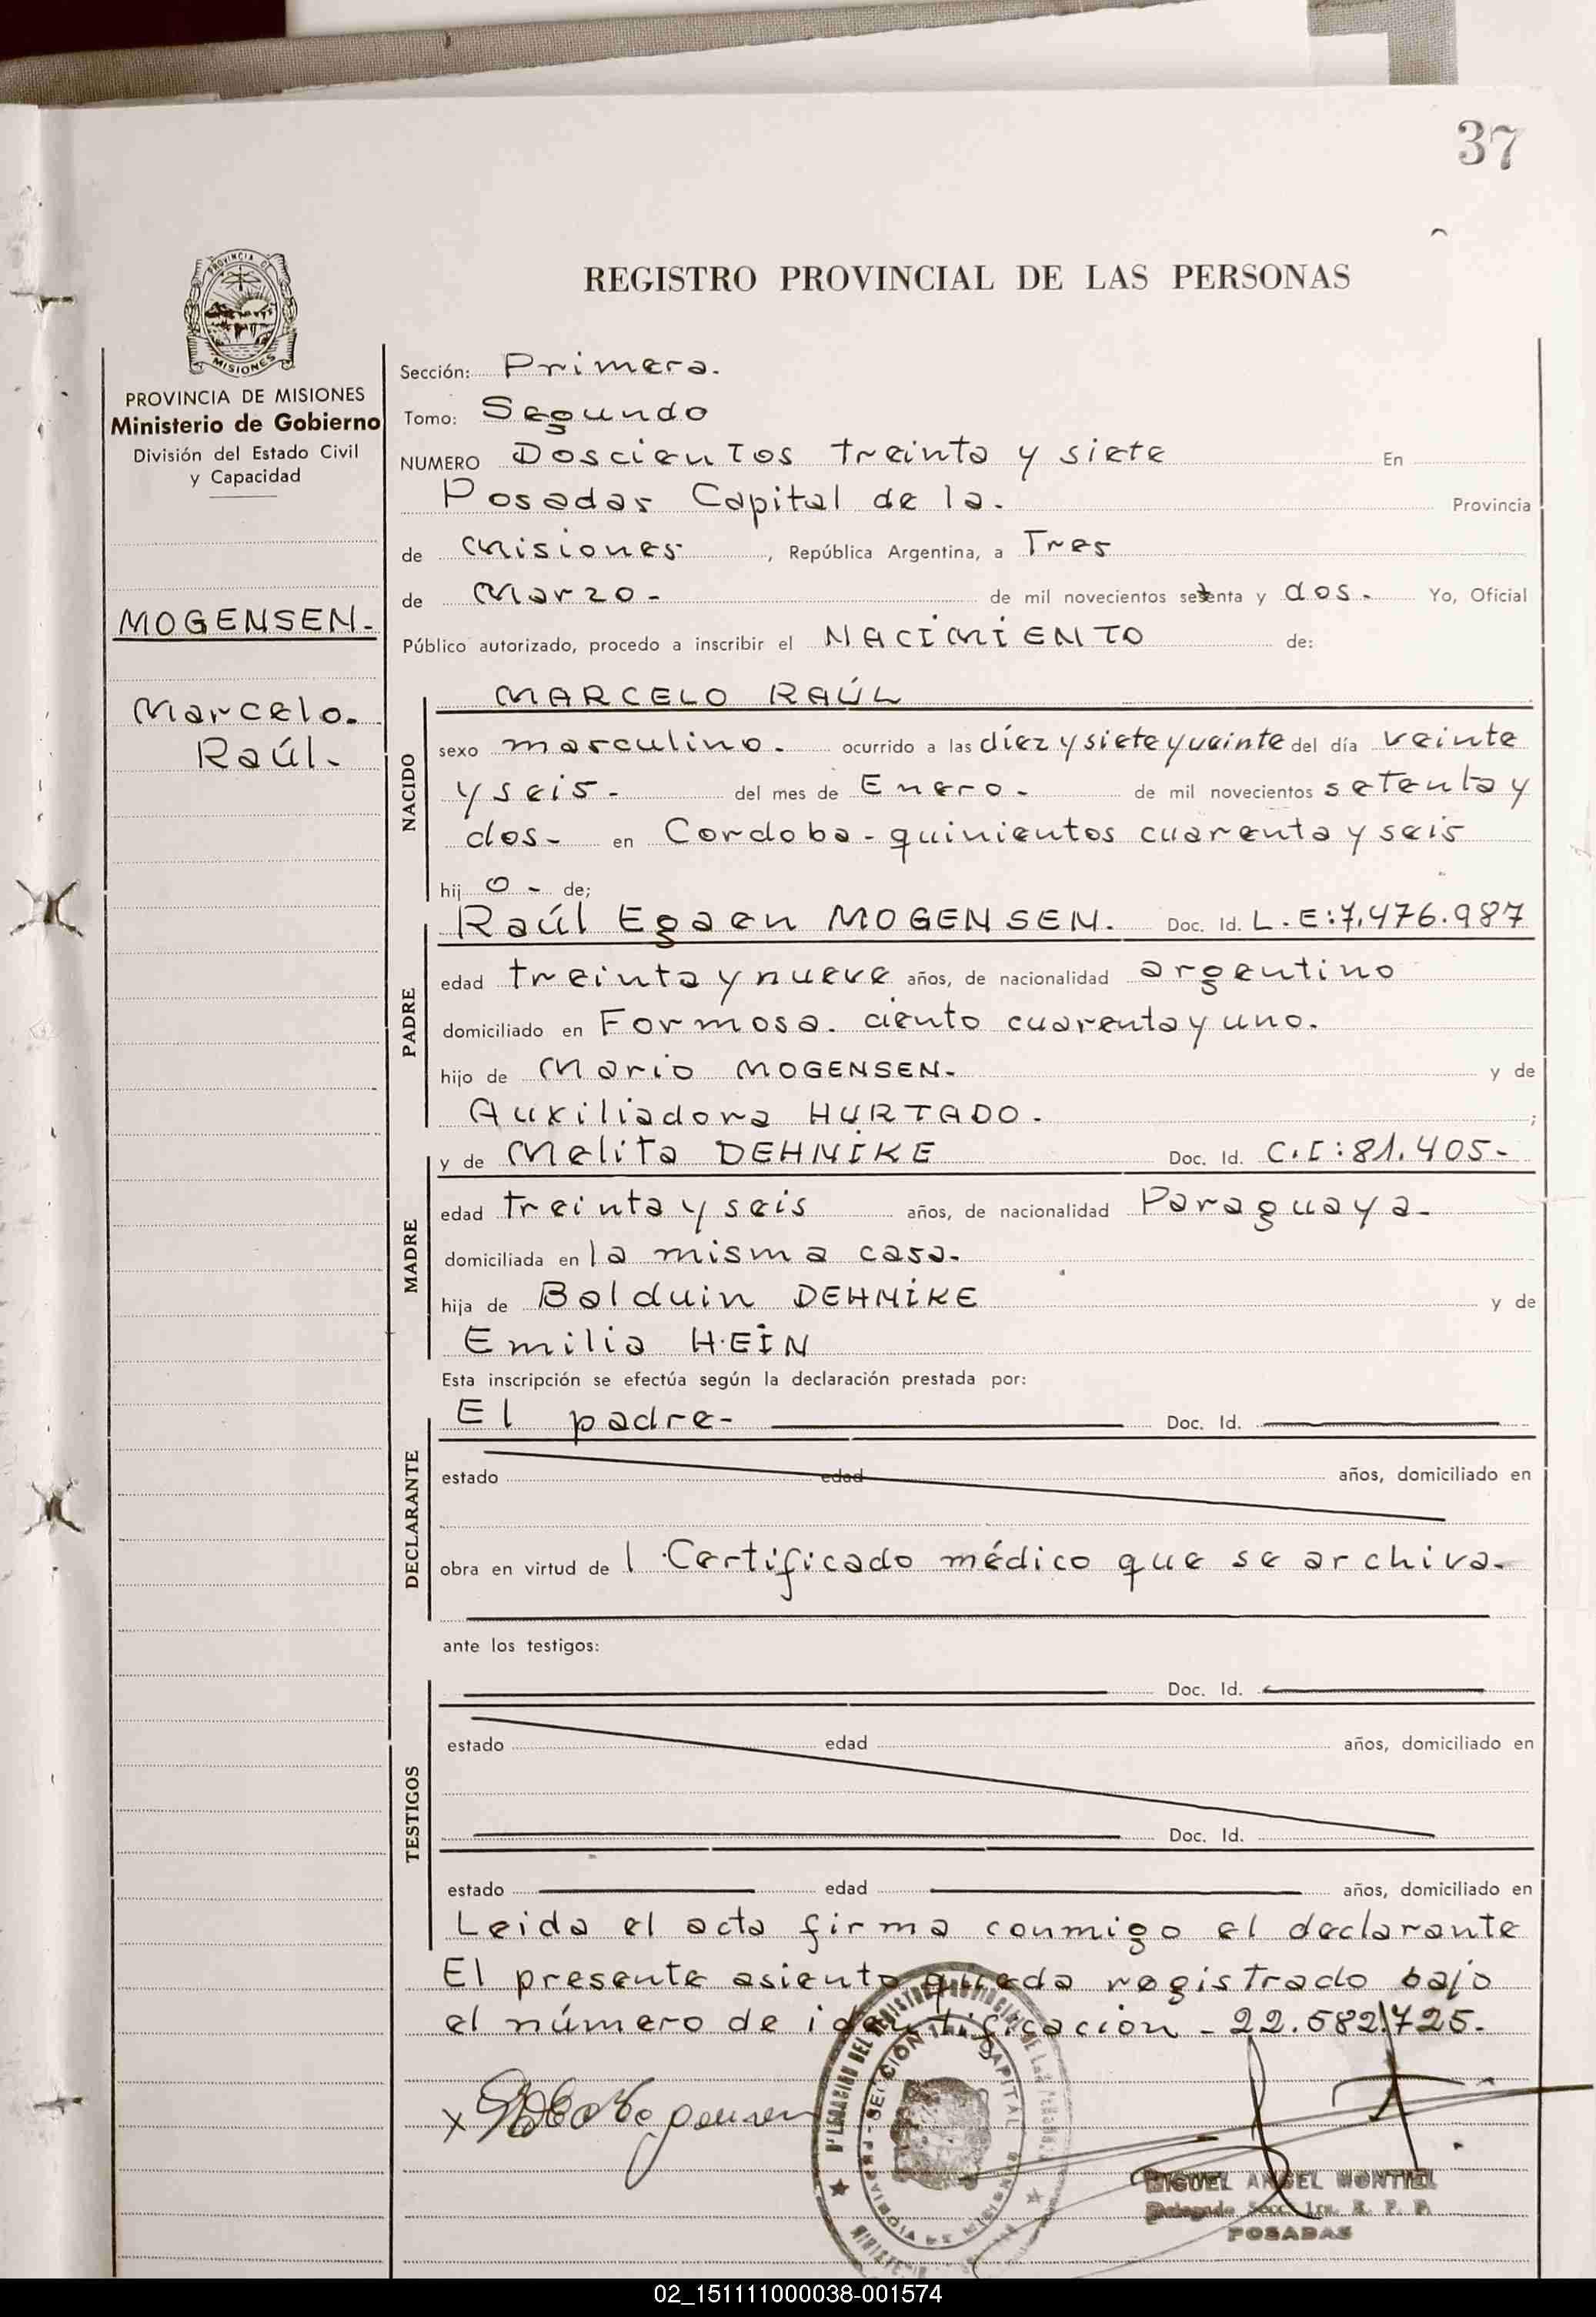 37
PROVINCIA DE
MISIONES
REGISTRO PROVINCIAL DE LAS PERSONAS
PROVINCIA DE MISIONES
Ministerio de Gobierno
División del Estado Civil
y Capacidad
MOGENSEN.-
Marcelo.
Raúl.-
Sección: Primera.
Tomo: Segundo
NUMERO Doscientos treinta y siete En
Posadas Capital de la. Provincia
de Misiones , República Argentina, a Tres
de Marzo - de mil novecientos setenta y dos. Yo, Oficial
Público autorizado, procedo a inscribir el NACIMIENTO de:
NACIDO
MARCELO RAÚL
sexo masculino. ocurrido a las diez y siete y veinte del día veinte
y seis - del mes de Enero. de mil novecientos setenta y
dos - en Cordoba - quinientos cuarenta y seis
hij o - de;
PADRE
Raúl Egaen MOGENSEN. Doc. Id. L.E:7.476.987
edad treinta y nueve años, de nacionalidad argentino
domiciliado en Formosa. ciento cuarenta y uno.
hijo de Mario MOGENSEN. y de
Auxiliadora HURTADO. ;
MADRE
y de Melita DEHNIKE Doc. Id. C.I:81.405-
edad treinta y seis años, de nacionalidad Paraguaya.
domiciliada en la misma casa.
hija de Balduin DEHNIKE y de
Emilia HEIN
Esta inscripción se efectúa según la declaración prestada por:
DECLARANTE
El padre- Doc. Id.
estado edad años, domiciliado en
obra en virtud de 1 Certificado médico que se archiva.
ante los testigos:
TESTIGOS
Doc. Id.
estado edad años, domiciliado en
Doc. Id.
estado edad años, domiciliado en
Leida el acta firma conmigo el declarante
El presente asiento queda registrado bajo
el número de identificación - 22.582.725.
MIGUEL ANGEL MONTIEL
Delegado Secc. 1ra. R. P. P.
POSADAS
02_151111000038-001574